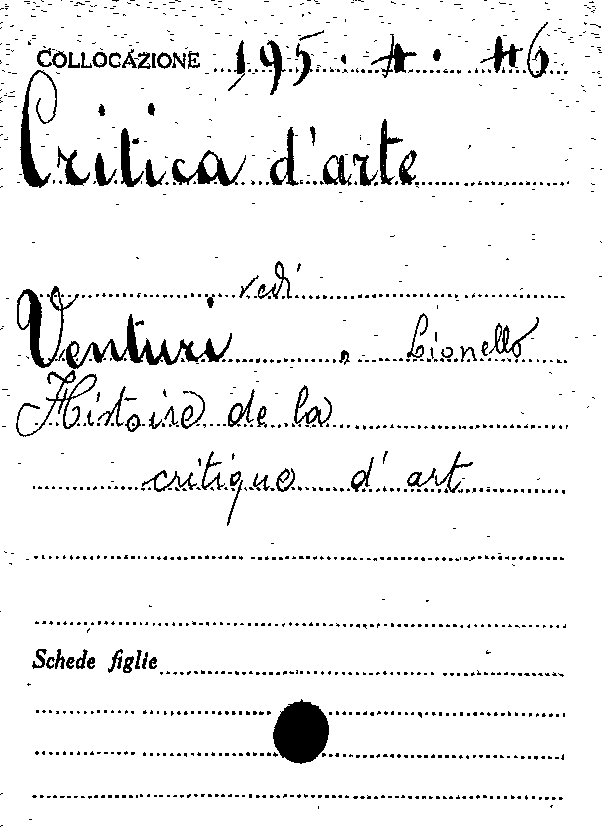 COLLOCAZIONE 195. H. H6
Critica d'arte
vedi
Venturi, Lionello
Histoire de la
critique d'art
Schede figlie